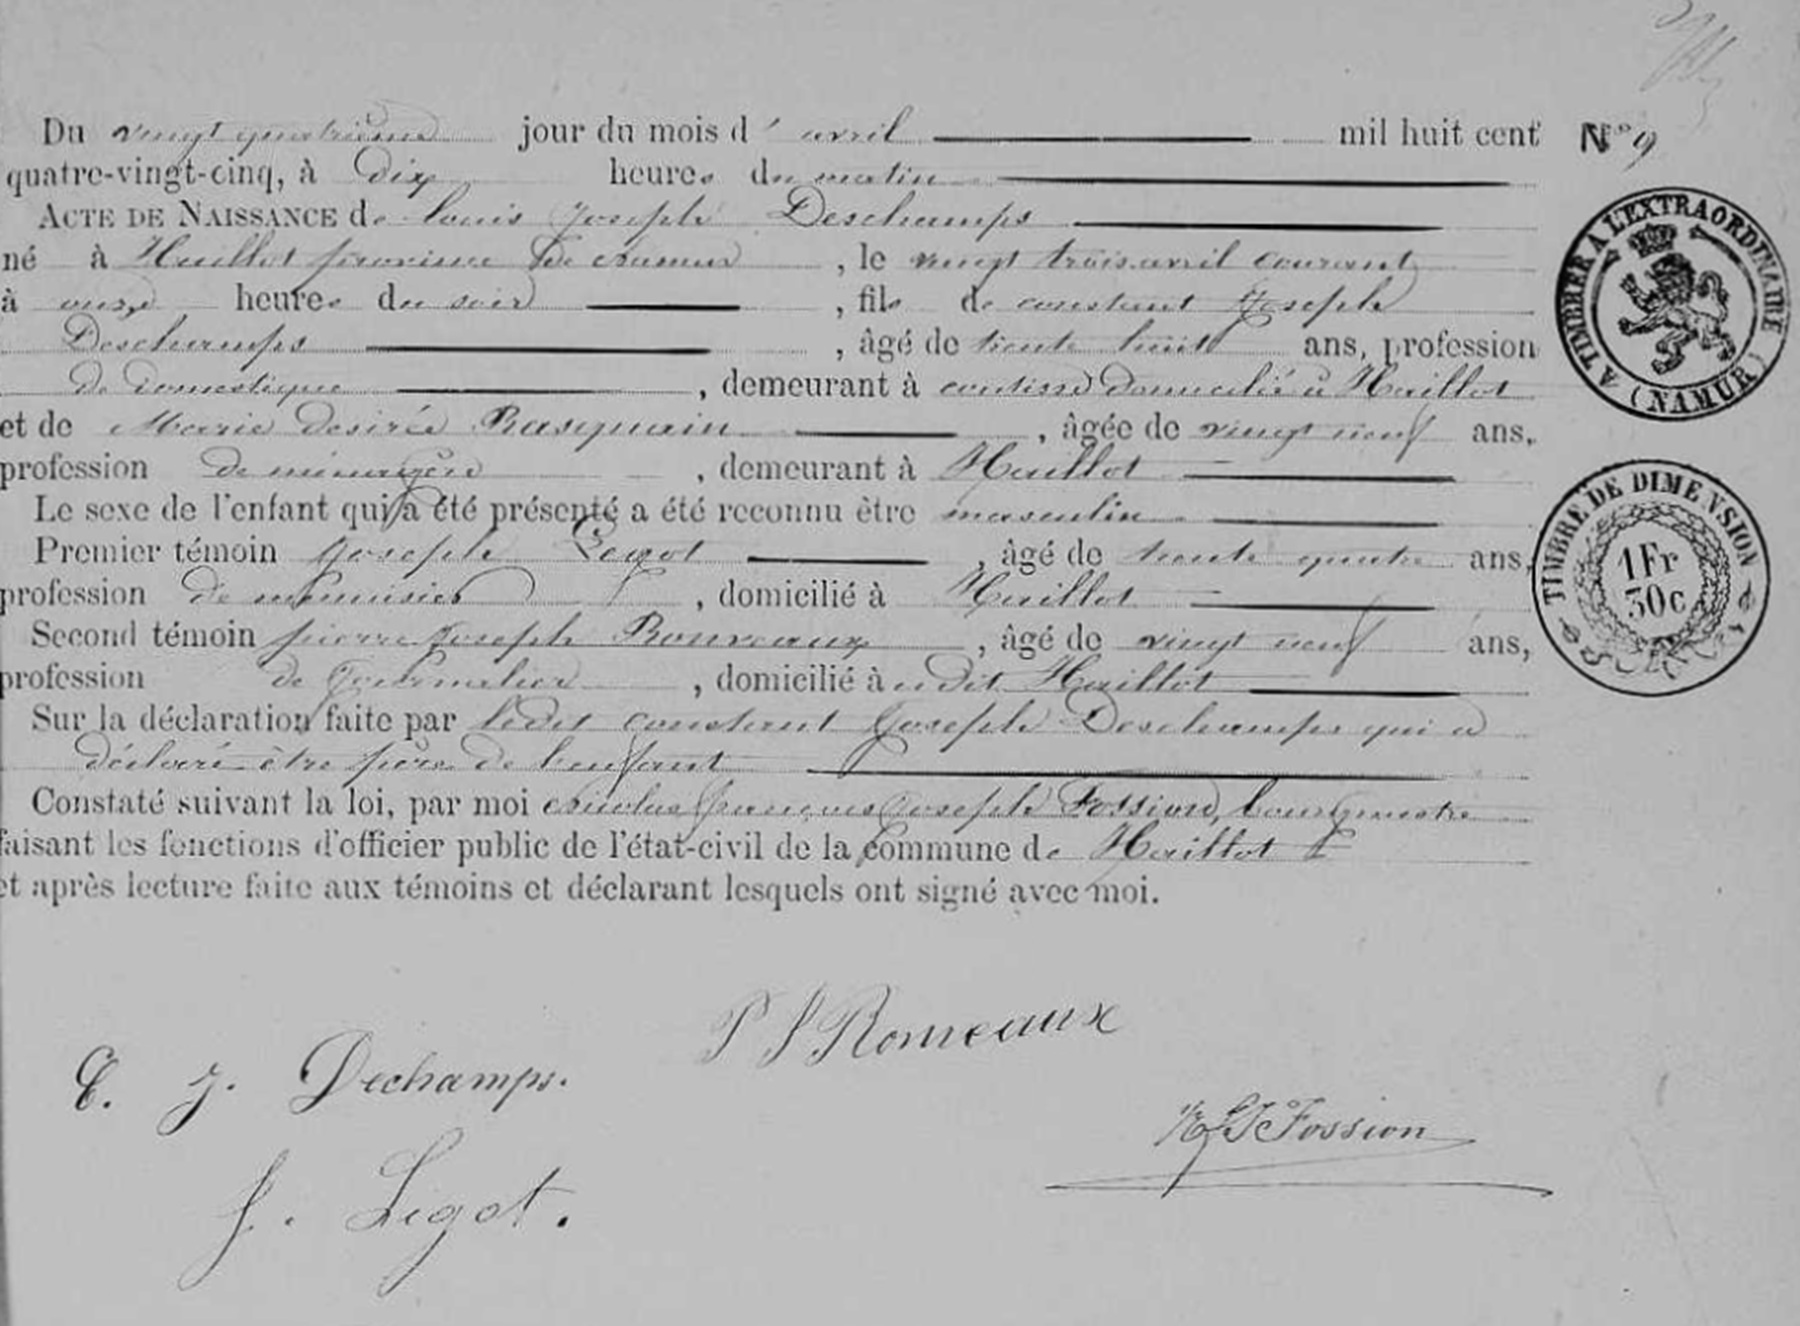 Du vingt quatrième jour du mois d' avril mil huit cent N° 9
quatre-vingt-cinq, à dix heures du matin
ACTE DE NAISSANCE de Louis Joseph Deschamps
né à Haillot province de Namur , le vingt trois avril courant
à onze heures du soir , fils de constant Joseph
Deschamps , âgé de trente huit ans, profession
de domestique , demeurant à coutisse domicilié à Haillot
et de Marie desirée Rasquain , âgée de vingt neuf ans,
profession de ménagère , demeurant à Haillot
Le sexe de l'enfant qui a été présenté a été reconnu être masculin
Premier témoin Joseph Legot , âgé de trente quatre ans,
profession de menuisier , domicilié à Haillot
Second témoin pierre Joseph Bonveaux , âgé de vingt neuf ans,
profession de Journalier , domicilié à u dit Haillot
Sur la déclaration faite par ledit constant Joseph Deschamps qui a
déclaré être père de l'enfant
Constaté suivant la loi, par moi Nicolas françois Joseph Fossion, bourgmestre
faisant les fonctions d'officier public de l'état-civil de la commune de Haillot
et après lecture faite aux témoins et déclarant lesquels ont signé avec moi.
TIMBRE A L'EXTRAORDINAIRE
(NAMUR)
TIMBRE DE DIMENSION
1Fr
30c
P J Bonveaux
C. J. Dechamps.
N F J Fossion
J. Ligot.